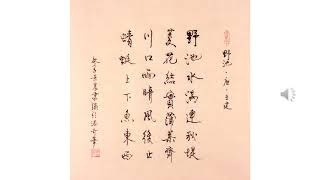 野池·唐·王建
野池水滿連秋堤
菱花結實蒲葉齊
川口雨晴風復止
蜻蜓上下魚東西